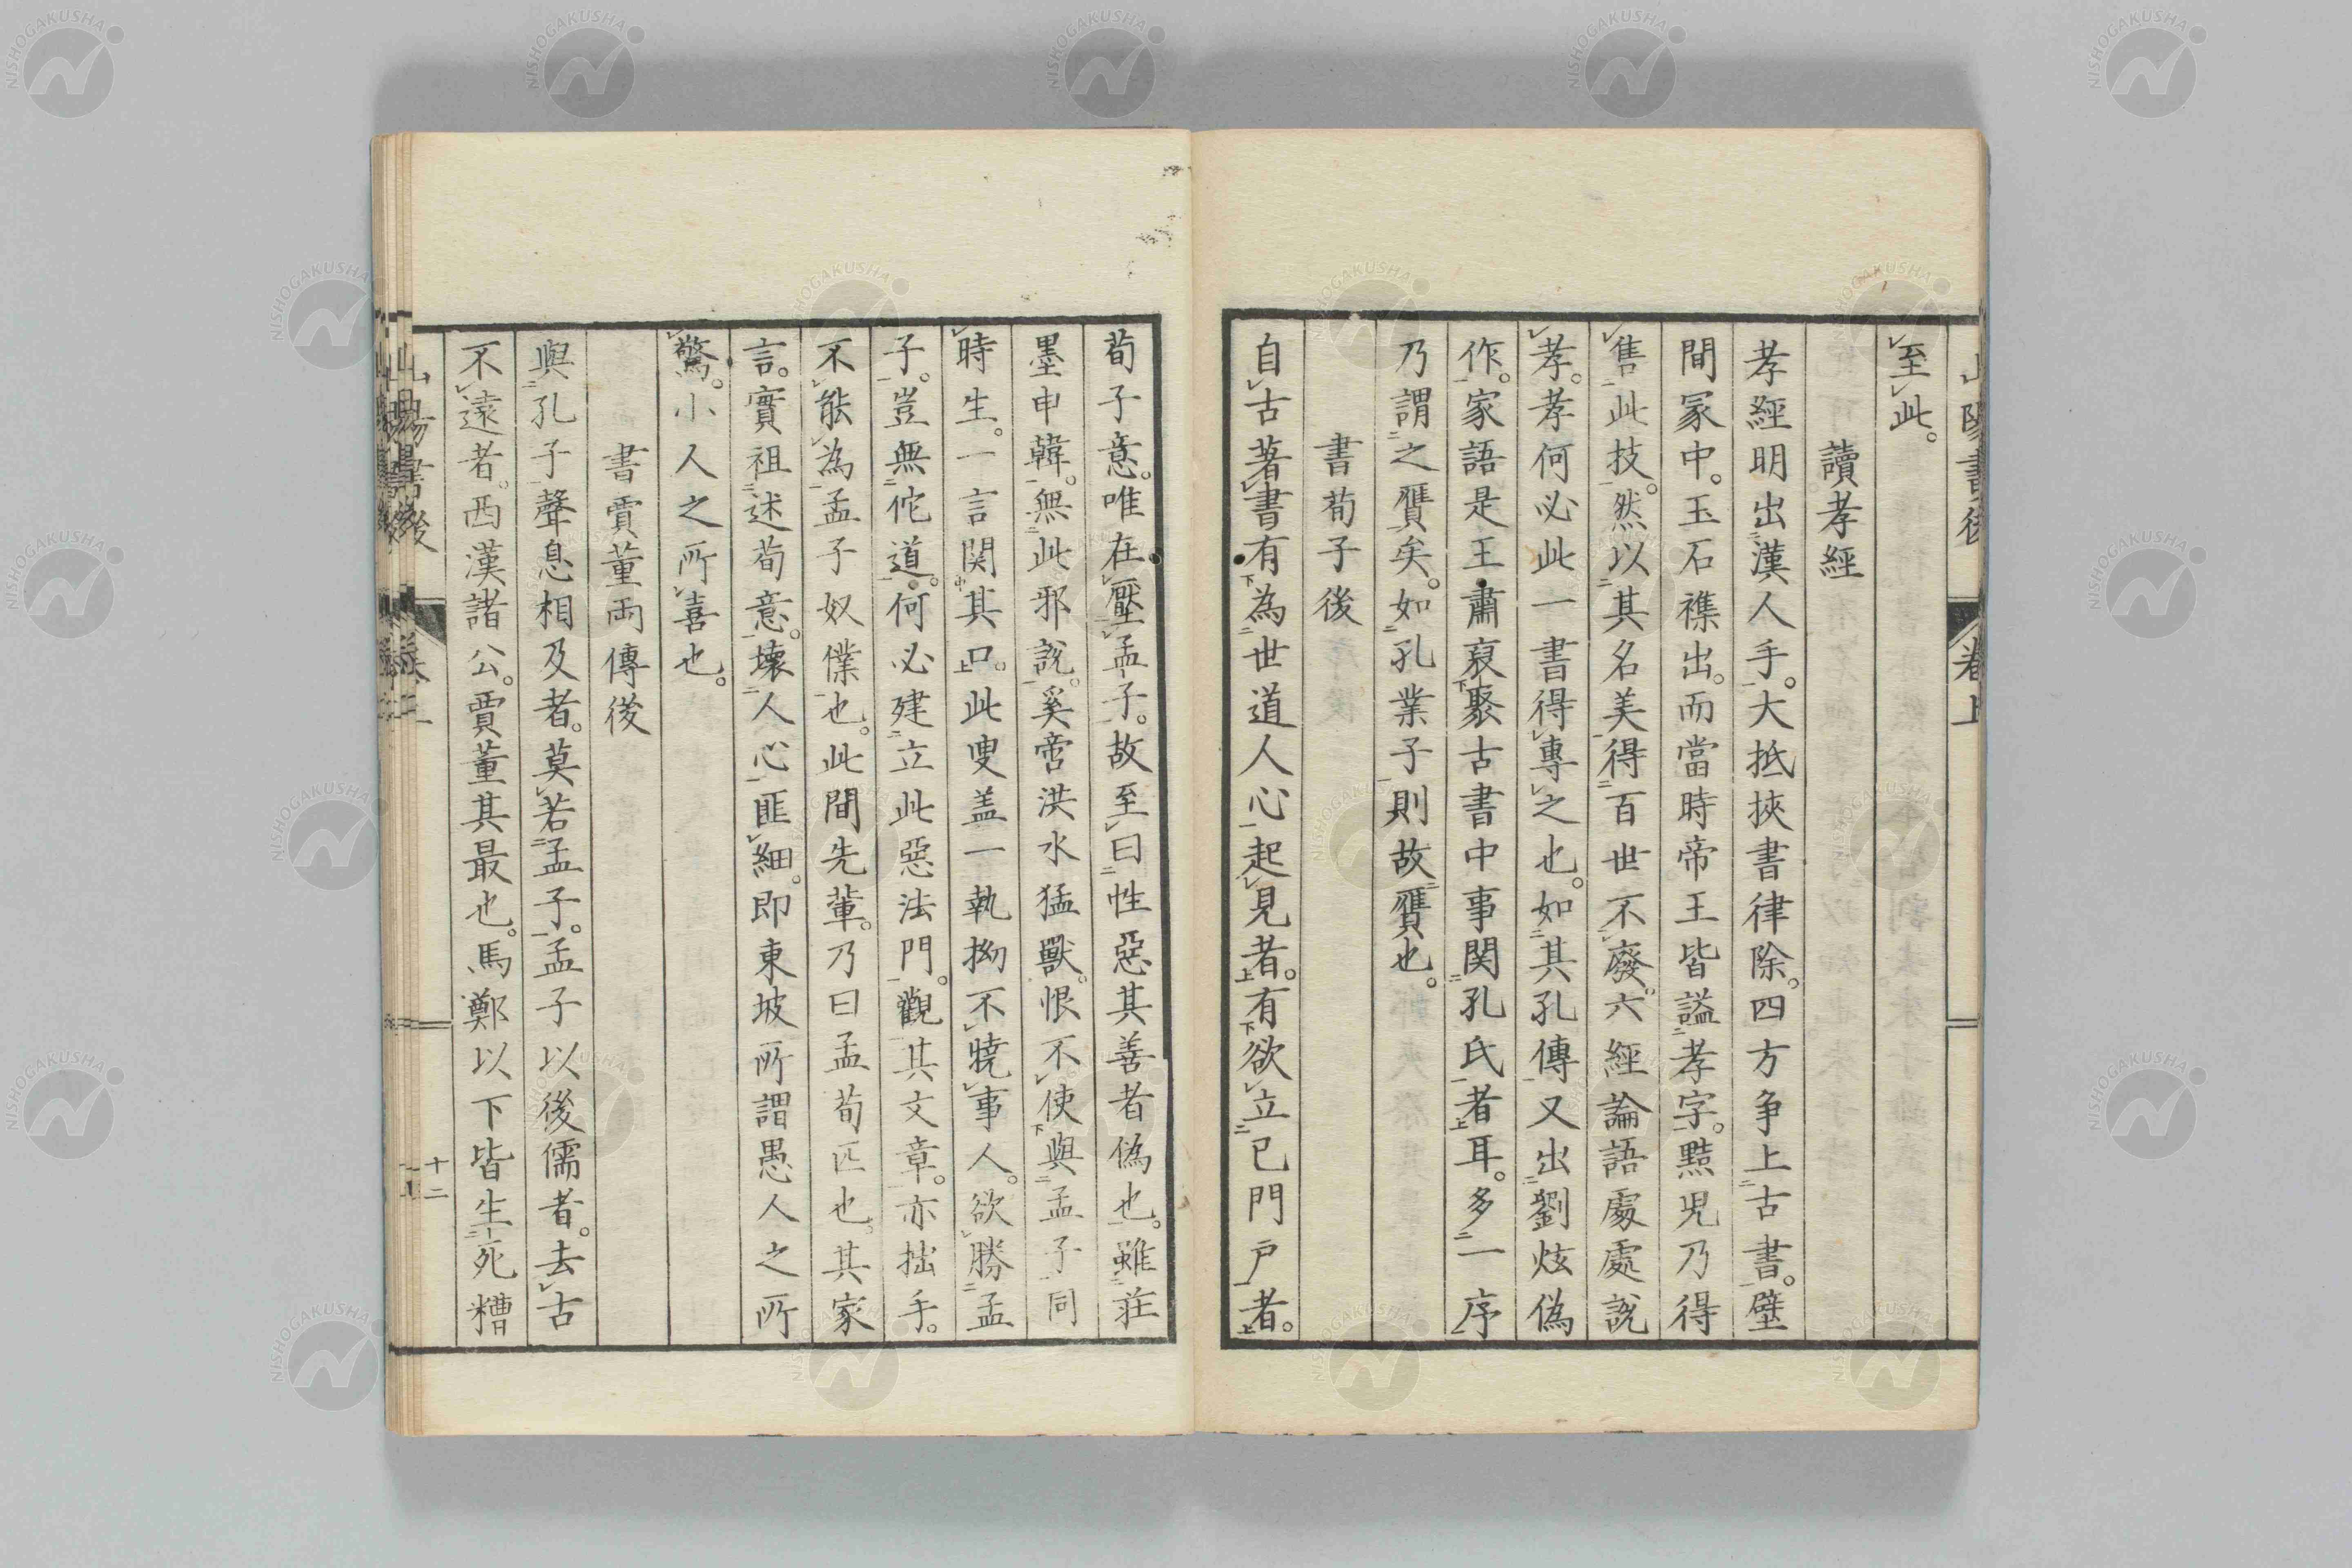 山陽書後
卷上
至此。
讀孝經
孝經明出漢人手。大抵挾書律除。四方争上古書。壁
間冢中。玉石襍出。而當時帝王皆謚孝字。黠児乃得
售此技。然以其名美。得百世不廢。六經論語處處說
孝。孝何必此一書得專之也。如其孔傳又出劉炫偽
作。家語是王肅裒聚古書中事関孔氏者耳。多一序
乃謂之贋矣。如孔業子則故贋也。
書荀子後
自古著書有為世道人心起見者。有欲立已門戸者。
荀子意。唯在壓孟子。故至曰性惡其善者偽也。雖莊
墨申韓。無此邪說。奚啻洪水猛獸。恨不使與孟子同
時生。一言関其口。此叟盖一執拗不曉事人。欲勝孟
子。豈無佗道。何必建立此惡法門。觀其文章。亦拙手。
不能為孟子奴僕也。此間先輩。乃曰孟荀匹也。其家
言。實祖述荀意。壊人心匪細。即東坡所謂愚人之所
驚。小人之所喜也。
書賈董両傳後
與孔子聲息相及者。莫若孟子。孟子以後儒者。去古
不遠者。西漢諸公。賈董其最也。馬鄭以下皆生死糟
十二
NISHOGAKUSHA